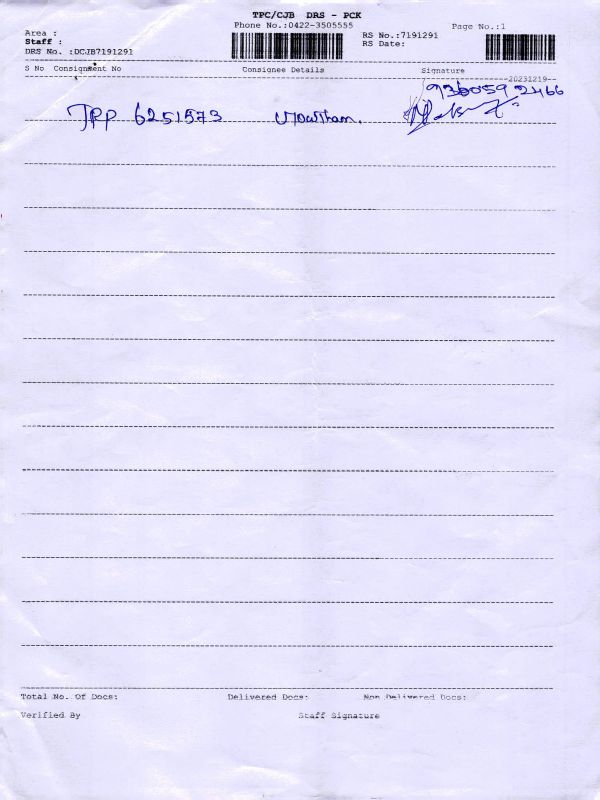 TPC/CJB DRS - PCK
Phone No.:0422-3505555 Page No.:1
Area :
RS No.:7191291
Staff :
RS Date:
DRS No. :DCJB7191291
S No Consignment No Consignee Details Signature
20231219
936059 2466
TPP 6251573
Total No. Of Docs: Delivered Docs: Non Delivered Docs:
Verified By Staff Signature